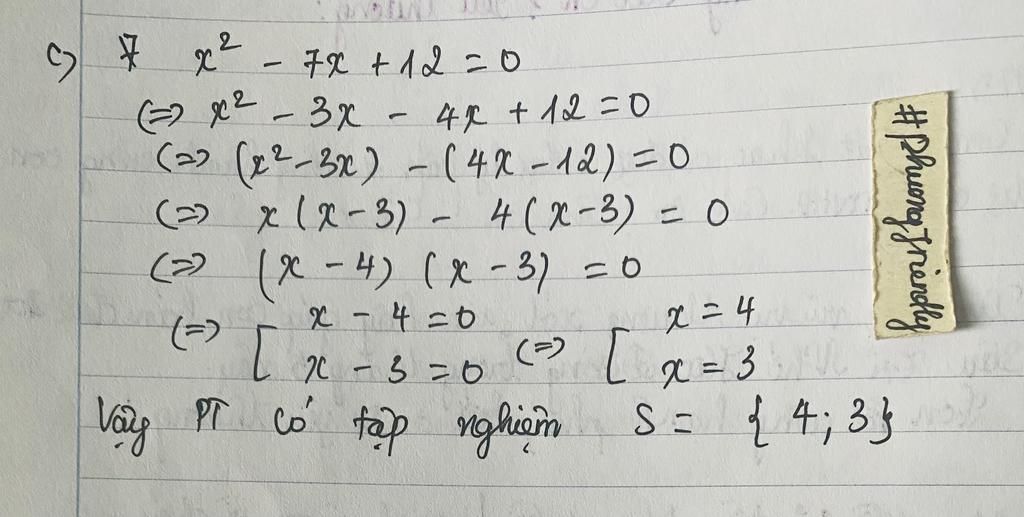 c) x² - 7x + 12 = 0
(=) x² - 3x - 4x + 12 = 0
(=) (x² - 3x) - (4x - 12) = 0
(=) x(x - 3) - 4(x - 3) = 0
(=) (x - 4) (x - 3) = 0
(=) [ x - 4 = 0 (=) [ x = 4
x - 3 = 0 x = 3
Vậy PT có tập nghiệm S = {4; 3}
#PhuongFriendly